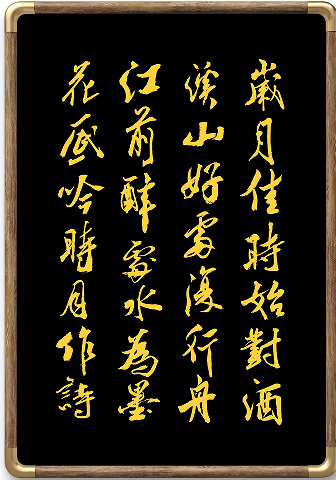 歲月佳時始對酒
溪山好處復行舟
江前醉處水為墨
花底吟時月作詩